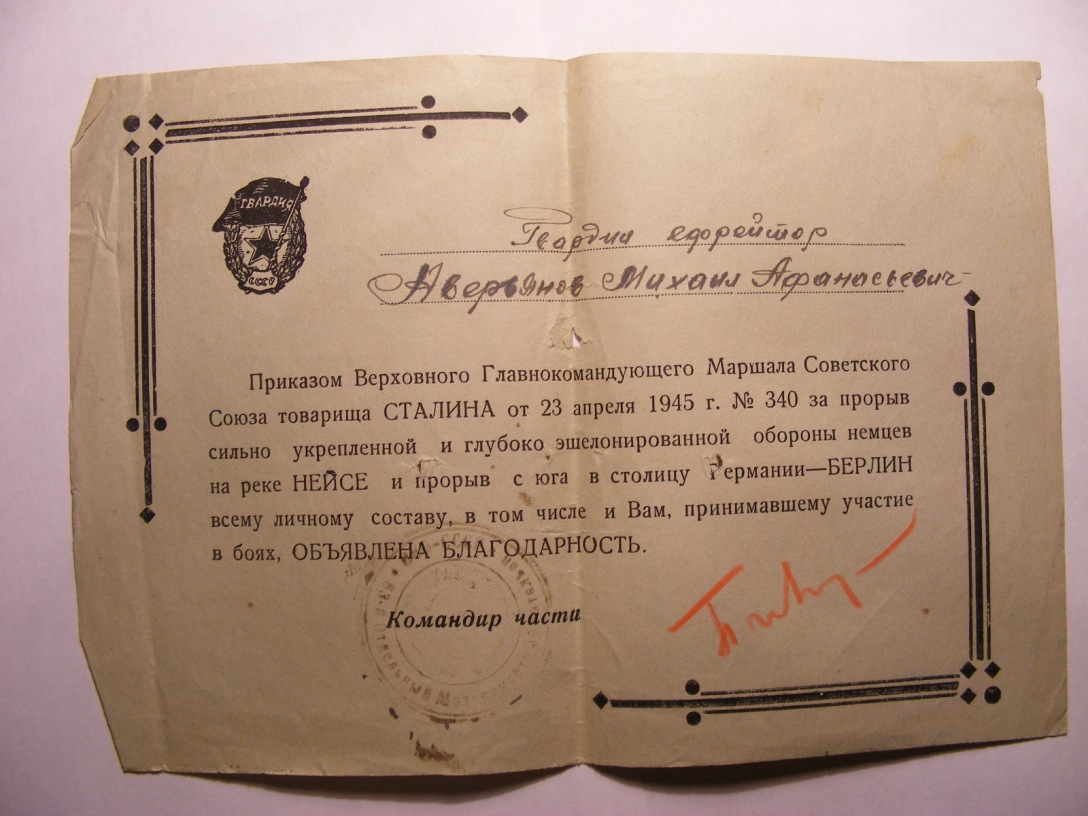 ГВАРДИЯ
СССР
Гвардии ефрейтор
Аверьянов Михаил Афанасьевич
Приказом Верховного Главнокомандующего Маршала Советского
Союза товарища СТАЛИНА от 23 апреля 1945 г. № 340 за прорыв
сильно укрепленной и глубоко эшелонированной обороны немцев
на реке НЕЙСЕ и прорыв с юга в столицу Германии—БЕРЛИН
всему личному составу, в том числе и Вам, принимавшему участие
в боях, ОБЪЯВЛЕНА БЛАГОДАРНОСТЬ.
Командир части